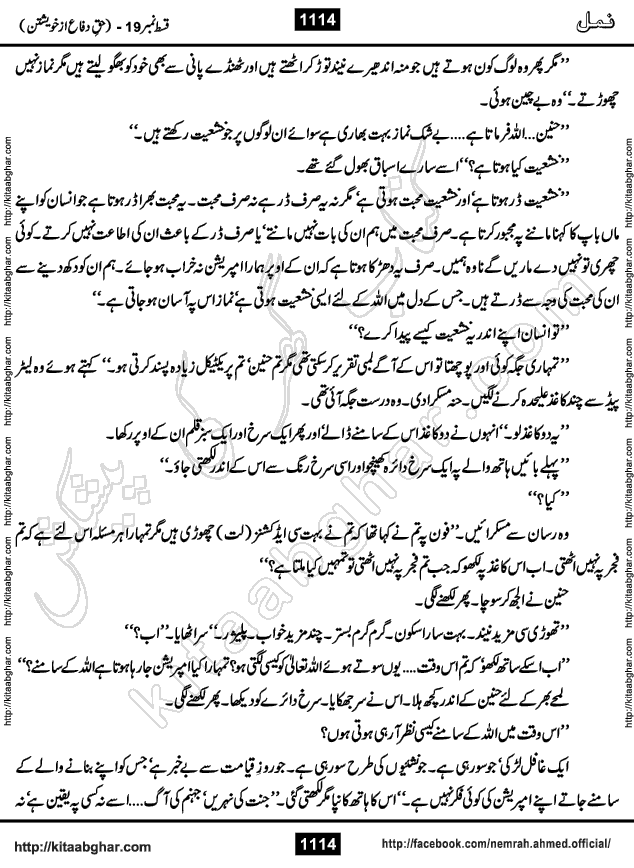 نمل 1114 قسط نمبر 19 - (حقِ دفاع از خویشتن)
’’مگر پھر وہ لوگ کون ہوتے ہیں جو منہ اندھیرے نیند توڑ کر اٹھتے ہیں اور ٹھنڈے پانی سے بھی خود کو بھگو لیتے ہیں مگر نماز نہیں
چھوڑتے۔‘‘ وہ بے چین ہوئی۔
’’حنین... اللہ فرماتا ہے.... بے شک نماز بہت بھاری ہے سوائے ان لوگوں پر جو خشعیت رکھتے ہیں۔‘‘
’’خشعیت کیا ہوتا ہے؟‘‘ اسے سارے اسباق بھول گئے تھے۔
’’خشعیت ڈر ہوتا ہے‘ اور خشعیت محبت ہوتی ہے‘ مگر نہ یہ صرف ڈر ہے نہ صرف محبت۔ یہ محبت بھرا ڈر ہوتا ہے جو انسان کو اپنے
ماں باپ کا کہنا ماننے پہ مجبور کرتا ہے۔ صرف محبت میں ہم ان کی بات نہیں مانتے‘ یا صرف ڈر کے باعث ان کی اطاعت نہیں کرتے۔ کوئی
چھری تو نہیں دے ماریں گے نا وہ ہمیں۔ صرف یہ دھڑکا ہوتا ہے کہ ان کے اوپر ہمارا امپریشن نہ خراب ہو جائے۔ ہم ان کو دکھ دینے سے
ان کی محبت کی وجہ سے ڈرتے ہیں۔ جس کے دل میں اللہ کے لئے ایسی خشعیت ہوتی ہے‘ نماز اس پہ آسان ہو جاتی ہے۔‘‘
’’تو انسان اپنے اندر یہ خشعیت کیسے پیدا کرے؟‘‘
’’تمہاری جگہ کوئی اور پوچھتا تو اس کے آگے لمبی تقریر کر سکتی تھی مگر تم حنین‘ تم پریکٹیکل زیادہ پسند کرتی ہو۔‘‘ کہتے ہوئے وہ لیٹر
پیڈ سے چند کاغذ علیحدہ کرنے لگیں۔ حنہ مسکرا دی۔ وہ درست جگہ آئی تھی۔
’’یہ دو کاغذ لو۔‘‘ انہوں نے دو کاغذ اس کے سامنے ڈالے‘ اور پھر ایک سرخ اور ایک سبز قلم ان کے اوپر رکھا۔
’’پہلے بائیں ہاتھ والے پہ ایک سرخ دائرہ کھینچو اور اسی سرخ رنگ سے اس کے اندر لکھتی جاؤ۔‘‘
’’کیا؟‘‘
وہ رسان سے مسکرائیں۔ ’’فون پہ تم نے کہا تھا کہ تم نے بہت سی ایڈکشنز (لت) چھوڑی ہیں مگر تمہارا ہر مسئلہ اس لئے ہے کہ تم
فجر پہ نہیں اٹھتی۔ اب اس کاغذ پہ لکھو کہ جب تم فجر پہ نہیں اٹھتی تو تمہیں کیا ملتا ہے؟‘‘
حنین نے الجھ کر سوچا۔ پھر لکھنے لگی۔
’’تھوڑی سی مزید نیند۔ بہت سارا سکون۔ گرم گرم بستر۔ چند مزید خواب۔ پلیژر۔‘‘ سر اٹھایا۔ ’’اب؟‘‘
’’اب اسکے ساتھ لکھو کہ تم اس وقت.... یوں سوتے ہوئے اللہ تعالیٰ کو کیسی لگتی ہو؟ تمہارا کیا امپریشن جا رہا ہوتا ہے اللہ کے سامنے؟‘‘
لمحے بھر کے لئے حنین کے اندر کچھ ہلا۔ اس نے سر جھکایا۔ سرخ دائرے کو دیکھا۔ پھر لکھنے لگی۔
’’اس وقت میں اللہ کے سامنے کیسی نظر آ رہی ہوتی ہوں؟
ایک غافل لڑکی‘ جو سو رہی ہے۔ جو نشئیوں کی طرح سو رہی ہے۔ جو روزِ قیامت سے بے خبر ہے‘ جس کو اپنے بنانے والے کے
سامنے جاتے اپنے امپریشن کی کوئی فکر نہیں ہے۔‘‘ اس کا ہاتھ کانپا مگر لکھتی گئی۔ ’’جنت کی نہریں‘ جہنم کی آگ.... اسے نہ کسی پہ یقین ہے‘ نہ
http://kitaabghar.com 1114 http://facebook.com/nemrah.ahmed.official/
http://kitaabghar.com
http://kitaabghar.com
http://kitaabghar.com
http://kitaabghar.com
http://kitaabghar.com
http://kitaabghar.com
http://kitaabghar.com
http://kitaabghar.com
http://kitaabghar.com
http://kitaabghar.com
http://kitaabghar.com
http://kitaabghar.com
کتاب گھر کی پیشکش
kitaabghar.com